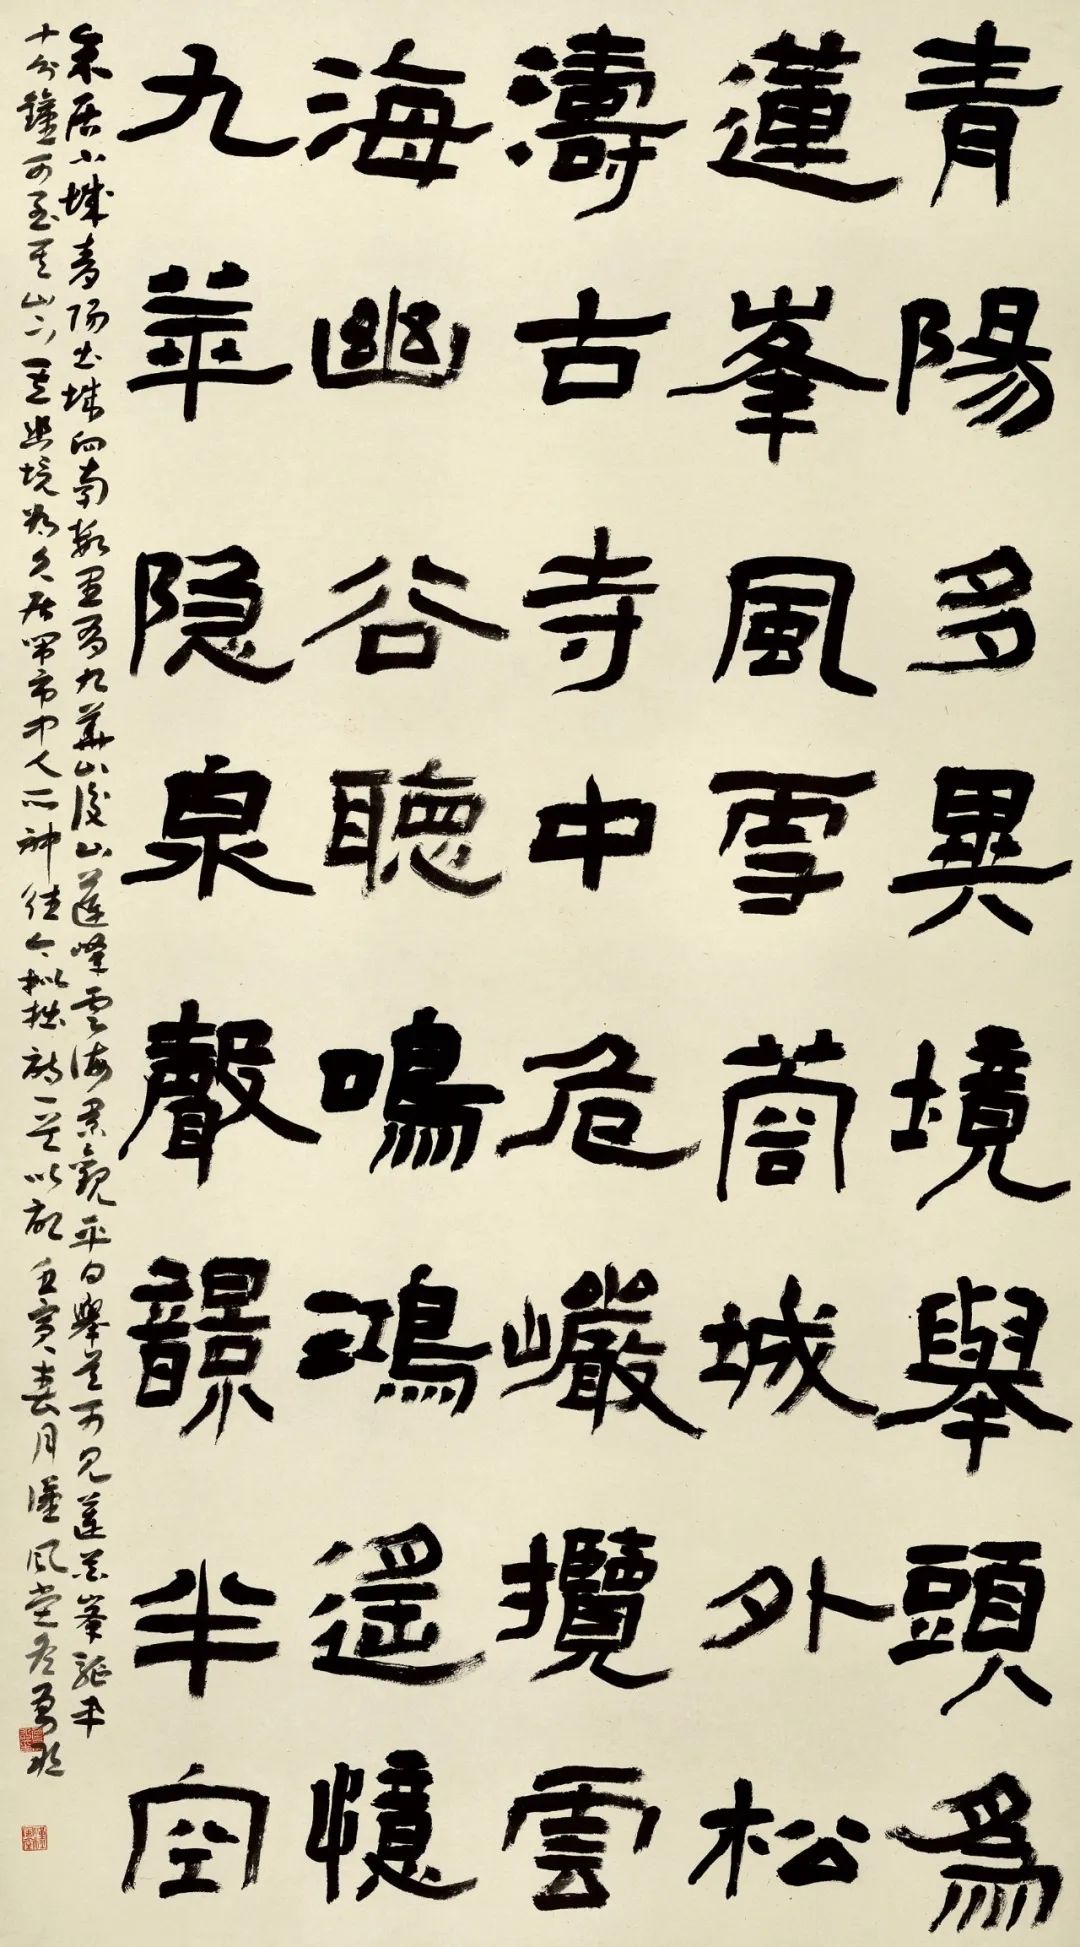 青陽多異境舉頭為
蓮峯風雪筒城外松
濤古寺中危巖攬雲
海幽谷聽鳴鴻遥憶
九華隐泉聲韻半空
余居小城青陽出城向南數里為九華山後山蓮峰雲海景觀平日舉首可見蓮花峯駈車
十分鐘可至其山下其幽境為久居鬧市中人所神往今擬拙詩一首以記壬寅春月漢風堂